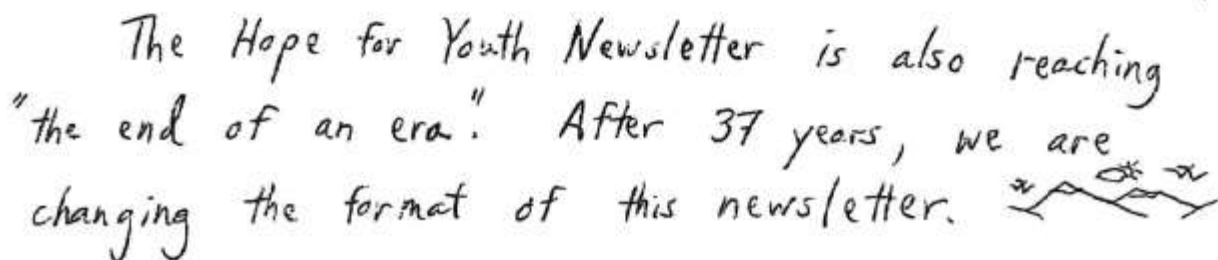 The Hope for Youth Newsletter is also reaching
"the end of an era". After 37 years, we are
changing the format of this newsletter.